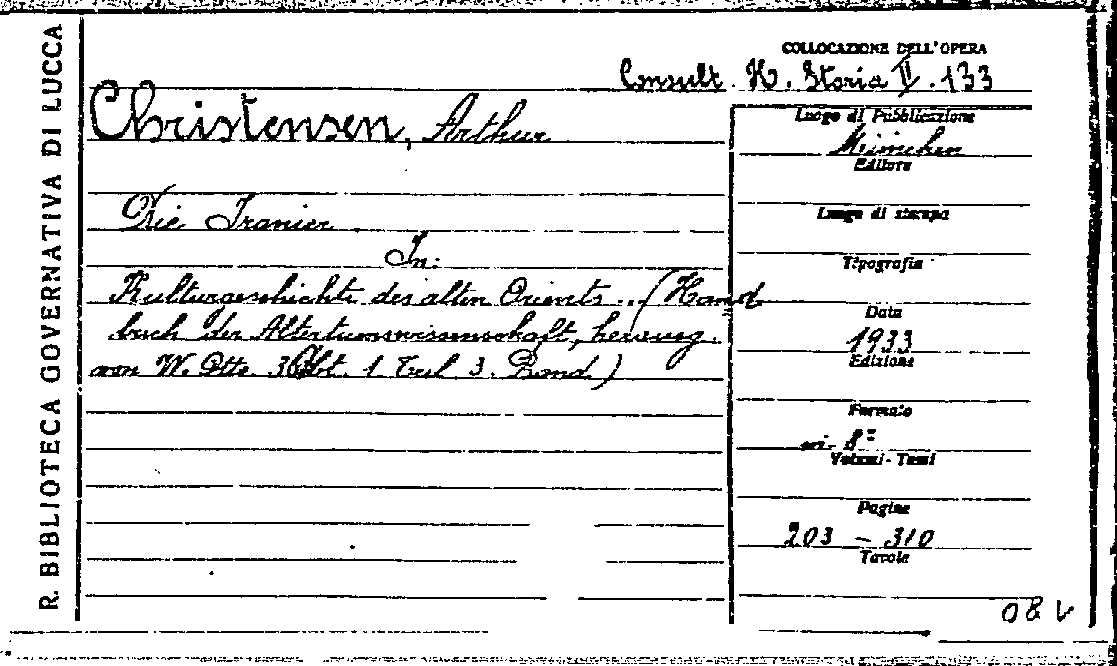 R. BIBLIOTECA GOVERNATIVA DI LUCCA
COLLOCAZIONE DELL'OPERA
Consult. H. Storia II. 133
Christensen, Arthur
Die Iranier
In:
Kulturgeschichte des alten Orients... (Hand
buch der Altertumswissenschaft, herausg.
von W. Otto. 3 Abt. 1 Teil 3. Band)
Luogo di Pubblicazione
München
Editore
Luogo di stampa
Tipografia
Data
1933
Edizione
Formato
in-8º
Volumi-Tomi
Pagine
203 - 310
Tavole